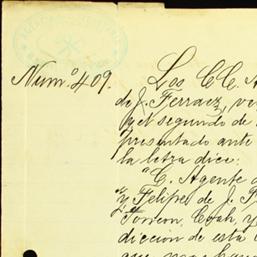 Num.º 409. Los CC. A
de J. Ferraez, ve
y el segundo de
presentado ante
la letra dice:
"C. Agente d
y Felipe de J. F
Torreon, Coah, y
diccion de esta
que nos han